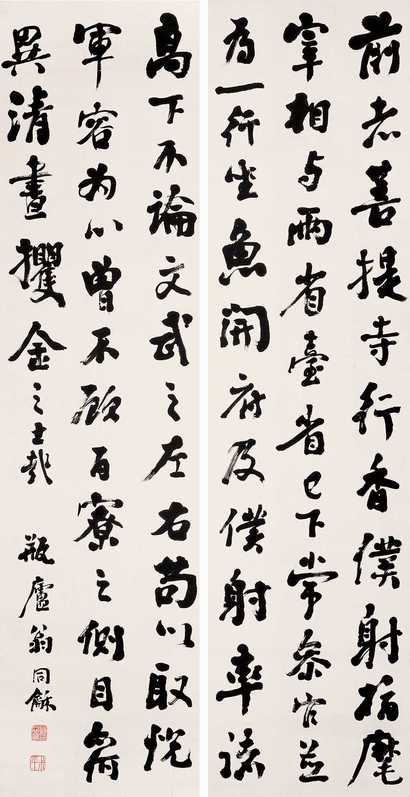 前者菩提寺行香僕射指麾
宰相与兩省臺省已下常參官並
為一行坐魚開府及僕射率諸
高下不論文武之左右苟以取悅
軍容為心曾不顧百寮之側目亦何
異清晝攫金之士哉 瓶廬翁同龢